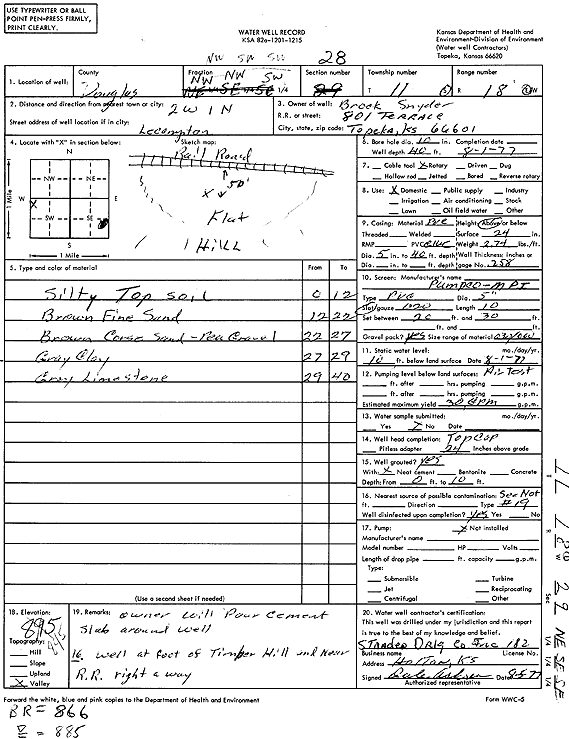 USE TYPEWRITER OR BALL
POINT PEN-PRESS FIRMLY,
PRINT CLEARLY.
WATER WELL RECORD
KSA 82a-1201-1215
Kansas Department of Health and
Environment-Division of Environment
(Water well Contractors)
Topeka, Kansas 66620
NW SW SW 28
1. Location of well:
County
Douglas
Fraction
NW NW SW
1/4
Section number
Township number
T 11 S
Range number
R 18 E/W
2. Distance and direction from nearest town or city: 2W 1N
Street address of well location if in city:
Lecompton
3. Owner of well: Brock Snyder
R.R. or street: 801 Terrace
City, state, zip code: Topeka, Ks 66601
4. Locate with "X" in section below:
Sketch map:
N
NW NE
W X E
SW SE
S
1 Mile
1 Mile
Rail Road
X 50'
Flat
Hill
5. Type and color of material From To
Silty Top soil 0 12
Brown Fine Sand 12 22
Brown Corse Sand - Pea Gravel 22 27
Gray Clay 27 29
Gray Limestone 29 40
(Use a second sheet if needed)
6. Bore hole dia. 10 in. Completion date
Well depth 40 ft. 8-1-77
7. Cable tool X Rotary Driven Dug
Hollow rod Jetted Bored Reverse rotary
8. Use: X Domestic Public supply Industry
Irrigation Air conditioning Stock
Lawn Oil field water Other
9. Casing: Material PVC Height: Above or below
Threaded Welded Surface 24 in.
RMP PVC Weight 2.74 lbs./ft.
Dia. 5 in. to 40 ft. depth Wall Thickness: inches or
Dia. in. to ft. depth gage No. .258
10. Screen: Manufacturer's name
Type PVC Dia. 5"
Slot/gauze Length 10
Set between 20 ft. and 30 ft.
ft. and ft.
Gravel pack? yes Size range of material
11. Static water level: mo./day/yr.
10 ft. below land surface Date 8-1-77
12. Pumping level below land surfaces: Air Test
ft. after hrs. pumping g.p.m.
ft. after hrs. pumping g.p.m.
Estimated maximum yield 30 GPM g.p.m.
13. Water sample submitted: mo./day/yr.
Yes X No Date
14. Well head completion: Top Cap
Pitless adapter 24 Inches above grade
15. Well grouted? yes
With: X Neat cement Bentonite Concrete
Depth: From 0 ft. to 10 ft.
16. Nearest source of possible contamination: See Not
ft. Direction Type #19
Well disinfected upon completion? yes Yes No
17. Pump: X Not installed
Manufacturer's name
Model number HP Volts
Length of drop pipe ft. capacity g.p.m.
Type:
Submersible Turbine
Jet Reciprocating
Centrifugal Other
18. Elevation:
895
Topography:
Hill
Slope
Upland
X Valley
19. Remarks: owner will Pour cement
Slab around well
16. well at foot of Timper Hill and near
R.R. right a way
20. Water well contractor's certification:
This well was drilled under my jurisdiction and this report
is true to the best of my knowledge and belief.
Strader Drlg Co Inc 182
Business name License No.
Address Holton, Ks
Signed Date 8-5-77
Authorized representative
Forward the white, blue and pink copies to the Department of Health and Environment
Form WWC-5
BR = 866
= 885
T 11 R 18 W Sec 29 NE SE SE
1/4 1/4 1/4